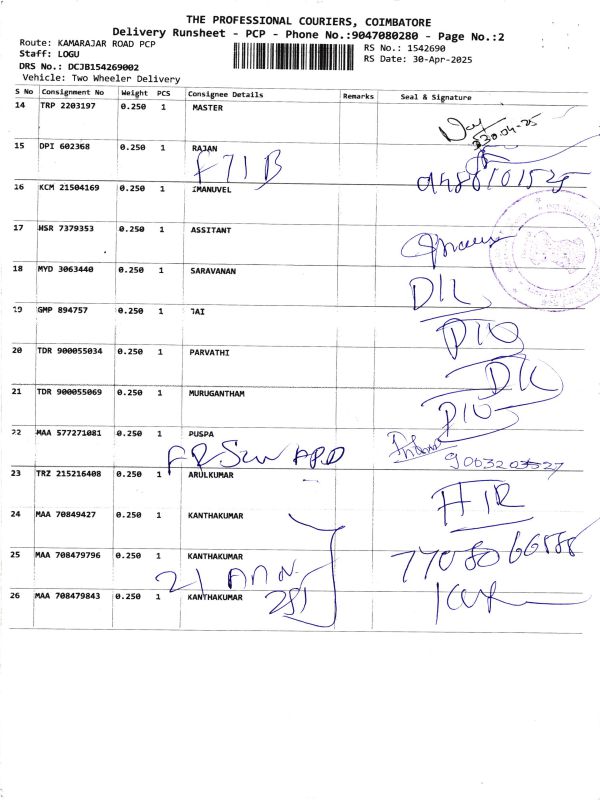 THE PROFESSIONAL COURIERS, COIMBATORE
Delivery Runsheet - PCP - Phone No.:9047080280 - Page No.:2
Route: KAMARAJAR ROAD PCP
RS No.: 1542690
Staff: LOGU
RS Date: 30-Apr-2025
DRS No.: DCJB154269002
Vehicle: Two Wheeler Delivery
S No Consignment No Weight PCS Consignee Details Remarks Seal & Signature
14 TRP 2203197 0.250 1 MASTER
30.04-25
15 DPI 602368 0.250 1 RAJAN
F71B
16 KCM 21504169 0.250 1 IMANUVEL
17 HSR 7379353 0.250 1 ASSITANT
18 MYD 3063440 0.250 1 SARAVANAN
19 GMP 894757 0.250 1 JAI
20 TDR 900055034 0.250 1 PARVATHI
21 TDR 900055069 0.250 1 MURUGANTHAM
22 MAA 577271081 0.250 1 PUSPA
9003203527
23 TRZ 215216408 0.250 1 ARULKUMAR
24 MAA 70849427 0.250 1 KANTHAKUMAR
25 MAA 708479796 0.250 1 KANTHAKUMAR
7708066888
26 MAA 708479843 0.250 1 KANTHAKUMAR
281